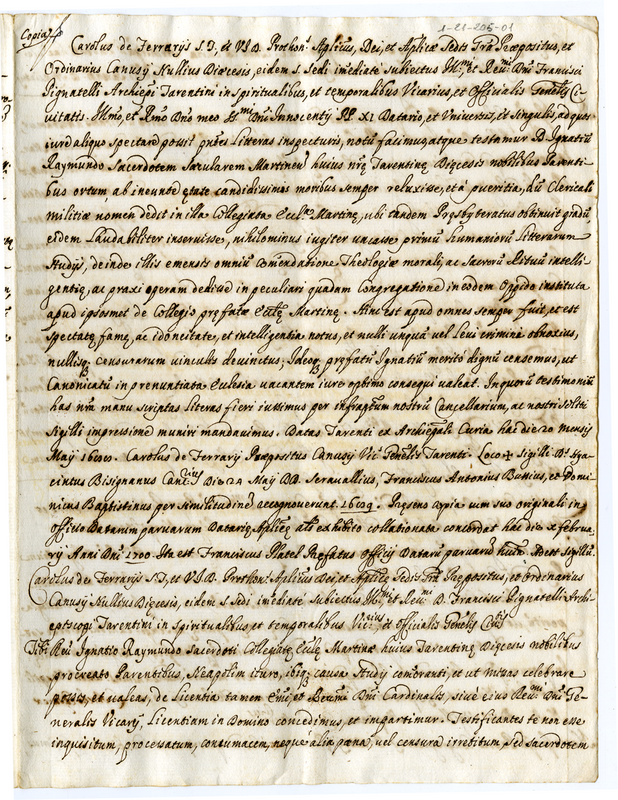 Copia
1-21-205-01
Carolus de Ferrarijs S.T., et V.I.D. Prothon: Aplicus, Dei, et Aplicæ Sedis Gra Præpositus, et
Ordinarius Canusij Nullius Diœcesis, eidem S. Sedi imediatè subiectus Ill.mi et Reu.mi Dni Francisci
Pignatelli Archiepi Tarentini in Spiritualibus, et temporalibus Vicarius, et Officialis Genelis Ci-
uitatis. Illmo, et Rmo Dno meo Dni Innocentij PP XI Datario, et Uniuersis, et singulis, ad quos
iure aliquo spectare possit pntes Litteras inspecturis, notũ facimus, atque testamur D. Ignatiũ
Raymundo Sacerdotem Sæcularem Martinen huius nrę Tarentinę Dięcesis nobilibus Parenti-
bus ortum, ab ineunte ętate candidissimis moribus semper reluxisse, et à pueritia, dũ Clericali
militiæ nomen dedit in illa Collegiata Martinę, ubi tandem Pręsbyteratus obtinuit gradũ
eidem Laudabiliter inseruisse, nihilominus iugiter uacasse primũ Humaniorũ Litterarum
studijs, deinde illis emensis omniũ comendatione Theologiæ morali, ac Sacrorũ Rituũ intelli-
gentię, ac praxi operam dedisse in peculiari quadam Congregatione in eodem Oppido instituta
apud ipsosmet de Collegio pręfatæ Martinę. Hinc est apud omnes semper fuit, et est
spectatę famę, ac idoneitate, et intelligentia notus, et nulli unquã uel leui crimini obnoxius,
nullisq censurarum uinculis deuinctus; Ideoq pręfatũ Ignatiũ meritò dignũ censemus, ut
Canonicatũ in prenuntiata Eulesia uacantem iure optimo consequi ualeat. In quorũ testimoniũ
has nrã manu scriptas literas fieri iussimus per infraptum nostrũ Cancellarium, ac nostri soliti
sigilli impressione muniri mandauimus. Datas Tarenti ex Archiepali Curia hac die 20 mensis
Maij Carolus de Ferrarijs Prepositus Canusij Vic. Genelis Tarenti. Loco + Sigilli. Dr Hya-
cintus Bisignanus Canc.rius Die 29 Maij DD. Serauallius, Franciscus Antonius Bussius, et Domi-
nicus Baptistinus per similitudinẽ recognouerunt. Presens copia cum suo originali in
offitio Datarum paruarum Datarię Aplicę exhibito collationata concordat hac die x februa-
rij Anni Dni 1700 Ita est Franciscus Platel Pręfatus Officij Datarũ paruarũ Adest sigillũ.
Carolus de Ferrarijs S.T., et V.I.D. Prothon: Aplicus Dei, et Aplicę Sedis Grã Prępositus, et Ordinarius
Canusij Nullius Dięcesis, eidem S. Sedi imediatè subiectus Ill.mi et Reu.mi D. Francisci Pignatelli Archi-
episcopi Tarentini in Spiritualibus et temporalibus Vic.rius et Officialis Genelis
Tibi Reu. Ignatio Raymundo Sacerdoti Collegiatę Martinæ huius Tarentinę Diecesis nobilibus
procreato Parentibus, Neapolim ituro, ibiq causa studij comoranti, et ut missas celebrare
possis, et ualeas, de Licentia tamen Emi, et Reu.mi Dni Cardinalis, siuè eius Reu.mi Dni Ge-
neralis Vicarij, Licentiam in Domino concedimus, et impartimur. Testificantes te non esse
inquisitum, processatum, contumacem, nequè alia pœna, uel censura irretitum, sed sacerdotem